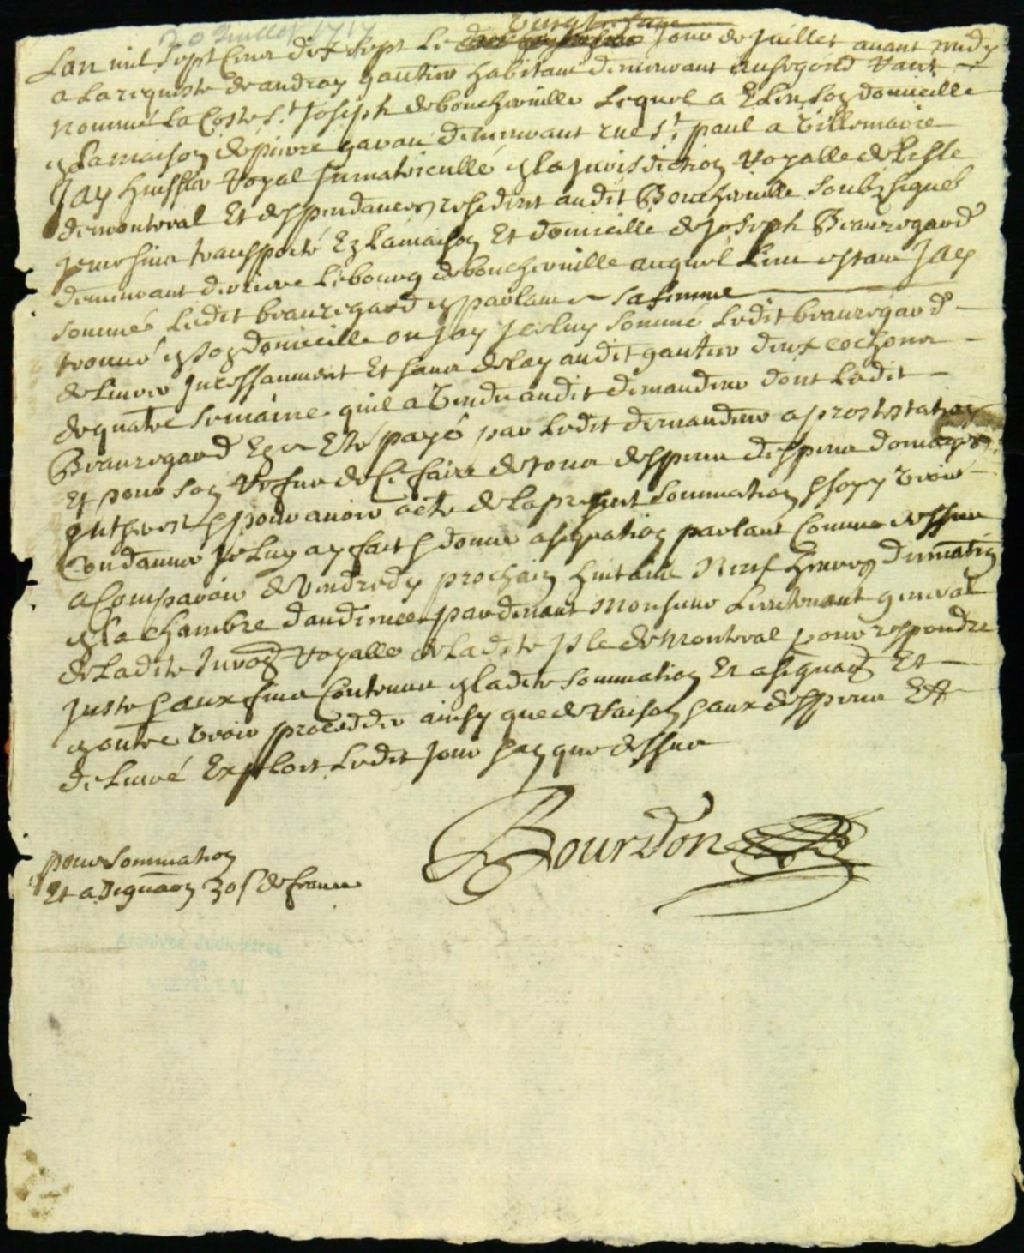 20 Juillet 1717
Lan mil sept Cens dix sept Le vingt jour de Juillet avant midy
a La requeste de andray gautier habitant demeurant
nommé La Coste St. Joseph de boucherville Lequel a Elin son domicille
en La maison de pierre gavau demeurant rue St. paul a Villemarie
Jay huissier Royal Immatricullé en La Jurisdiction Royalle de Lisle
demontreal Et deppendances residant audit Boucherville soubsigné
je me suis transporté En La maison Et domicille de Joseph Beauregard
demeurant deriere Le bourg de boucherville auquel Lieu estant Jay
sommé Ledit beauregard en parlant a sa femme
trouvé en son domicille ou Jay Jceluy sommé Ledit beauregard
de Livrer Jncessamment Et sans delay audit gautier deux cochons
de quatre semaine quil a Vendu audit demandeur dont Ledit
Beauregard a Esté payé par Ledit demandeur a protestation
Et pour son Refus de Ce faire de tous despens domages
Jntherest pour avoir acte de La presente sommation soy Voir
Condamner Je Luy ay fait donné assignation parlant Comme dessus
a Comparoir Vendredy prochain huitaine Neuf heures du matin
en La chambre daudience pardevant Monsieur Lieutenant general
de Ladite Jurdon Royalle de Ladite Jsle de Montreal pour respondre
juste aux fins Contenue en Ladite sommation Et assignaon Et
en outre Voir proceder ainsy que de Raison aux despens Et
de Livré Exploit Ledit jour an que dessus
Bourdon
pour sommation
Et assignaon 30s de france
Archives Judiciaires
de